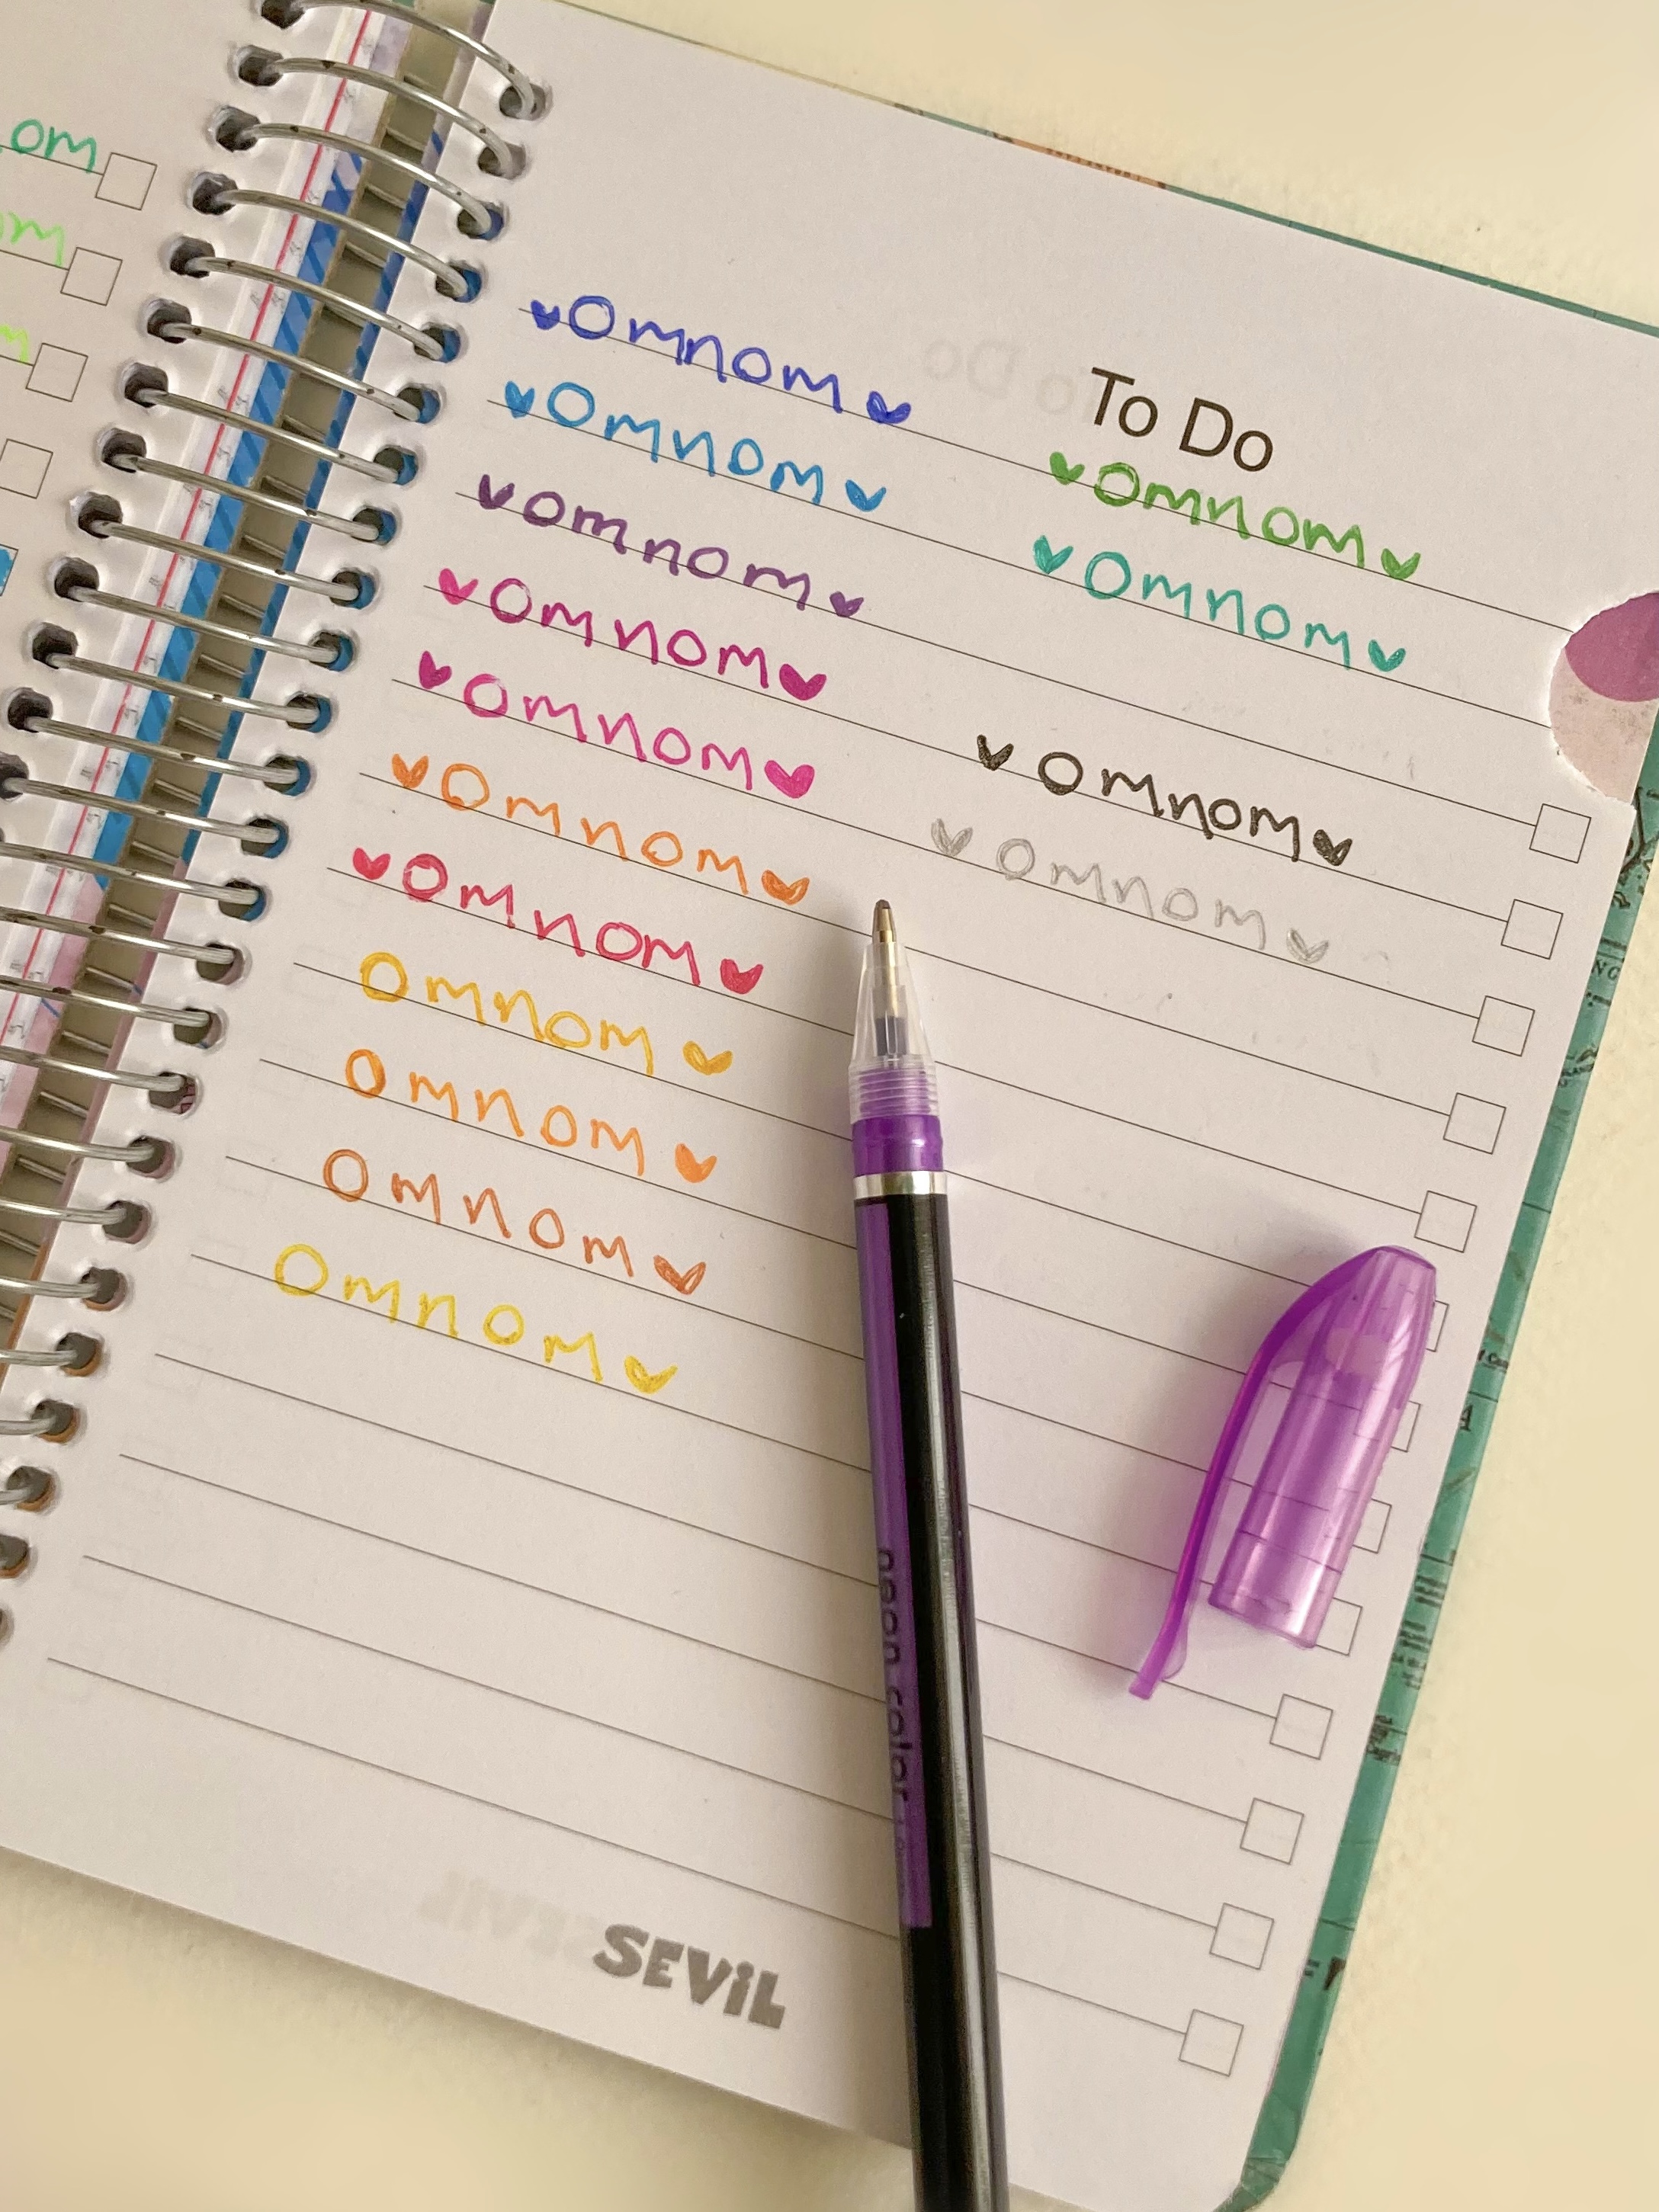 om
om
m
To Do
♥Omnom♥
♥Omnom♥
♥Omnom♥
♥Omnom♥
♥omnom♥
♥Omnom♥
♥Omnom♥
♥Omnom♥
♥Omnom♥
♥Omnom♥
♥Omnom♥
Omnom♥
Omnom♥
Omnom♥
Omnom♥
neon color
SEViL